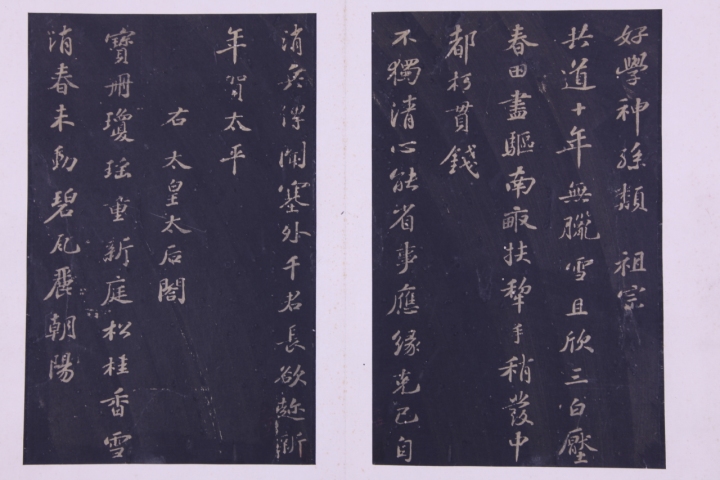 好學神孫類 祖宗
共道十年無臘雪且欣三白壓
春田盡驅南畝扶犂手稍發中
都朽貫錢
不獨清心能省事應緣克己自
消兵傳聞塞外千君長欲趁新
年賀太平
右太皇太后閤
寶冊瓊瑤重新庭松桂香雪
消春未動碧瓦麗朝陽